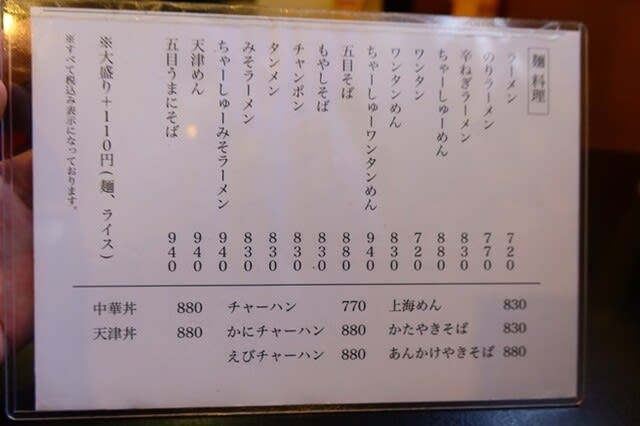 麺料理
ラーメン 720
のりラーメン 770
辛ねぎラーメン 830
ちゃーしゅーめん 880
ワンタン 720
ワンタンめん 830
ちゃーしゅーワンタンめん 940
五目そば 880
もやしそば 830
チャンポン 830
タンメン 830
みそラーメン 830
ちゃーしゅーみそラーメン 940
天津めん 940
五目うまにそば 940
※大盛り+110円(麺、ライス)
※すべて税込み表示になっております。
中華丼 880
天津丼 880
チャーハン 770
かにチャーハン 880
えびチャーハン 880
上海めん 830
かたやきそば 830
あんかけやきそば 880